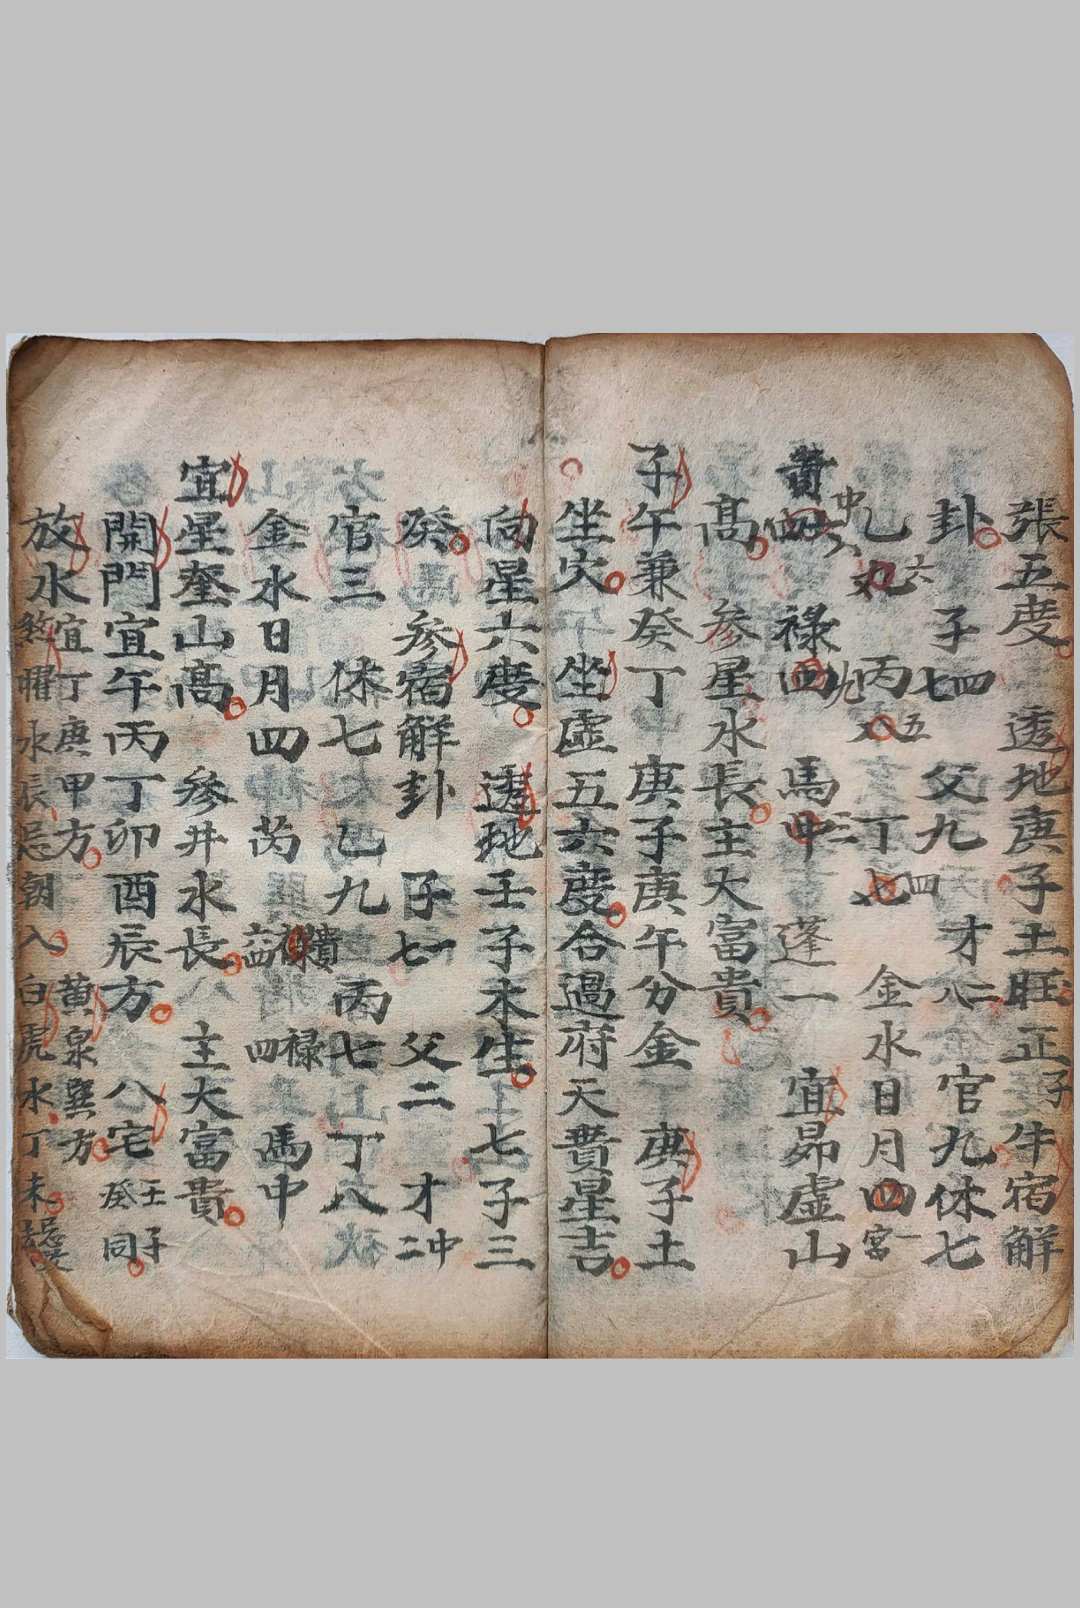 張五度 透地庚子土旺正子牛宿解
卦 子七四 父九四 才八二 官九休七
乙九六 丙八五 丁七 金水日月四一宮
貴四中六 祿四九 馬中三 蓬一 宜昴虛山
高 参星水長主大富貴
子午兼癸丁 庚子庚午分金 庚子土
坐穴 坐虛五六度合過府天貴星吉
向星六度 透地壬子木生 七子三
癸 参宿解卦 子七一 父二 才二中
官三 休七 乙九 丙七 丁八
金水日月四 芮 貴六四 祿四 馬中
宜星奎山高 參井水長 主大富貴
開門宜午丙丁卯酉辰方 八宅壬子癸同
放水宜丁庚甲方 黄泉巽方
煞曜水辰忌朝入 白虎水丁未忌